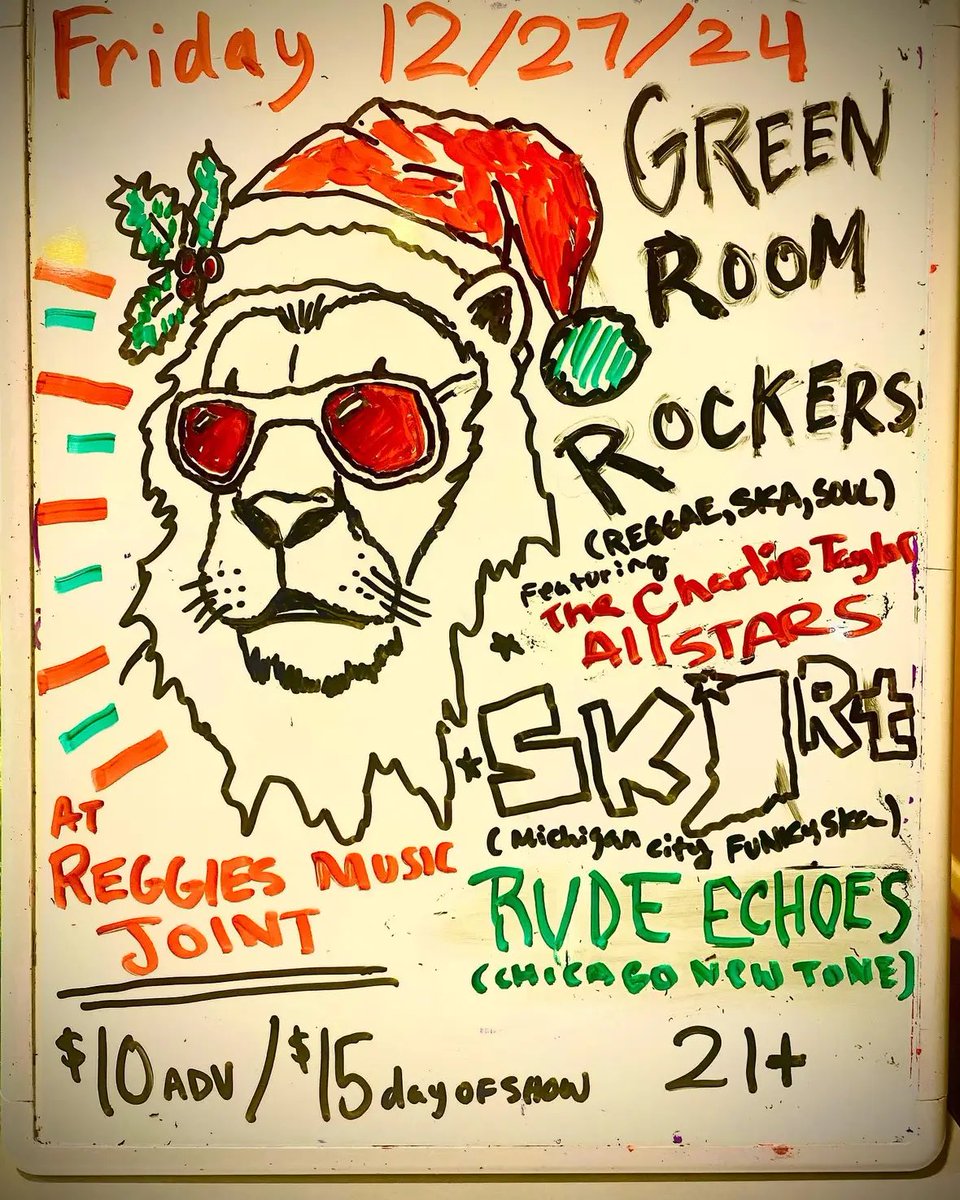 Friday 12/27/24
GREEN
ROOM
ROCKERS
(REGGAE, SKA, SOUL)
Featuring
The Charlie Taylor
AllSTARS
SKIRt
(Michigan city FUNKY SKA)
RUDE ECHOES
(CHICAGO NEW TONE)
AT
REGGIES MUSIC
JOINT
$10 ADV / $15 day OF SHOW
21+